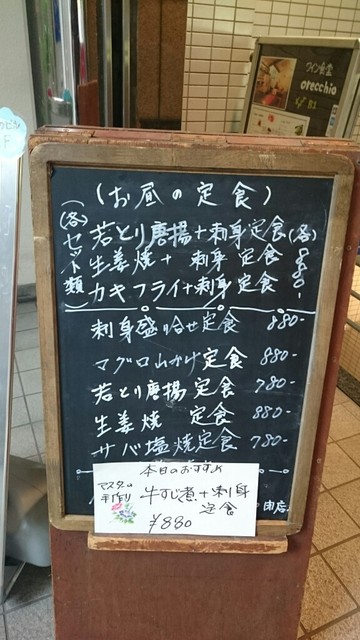 ワイン食堂
orecchio
B1
(お昼の定食)
(各)セット類
若とり唐揚+刺身定食(各)
生姜焼+刺身定食
カキフライ+刺身定食
880-
刺身盛り合せ定食 880-
マグロ山かけ定食 880-
若とり唐揚定食 780-
生姜焼 定食 880-
サバ塩焼定食 780-
本日のおすすめ
マスターの手作り
牛すじ煮+刺身
定食
¥880